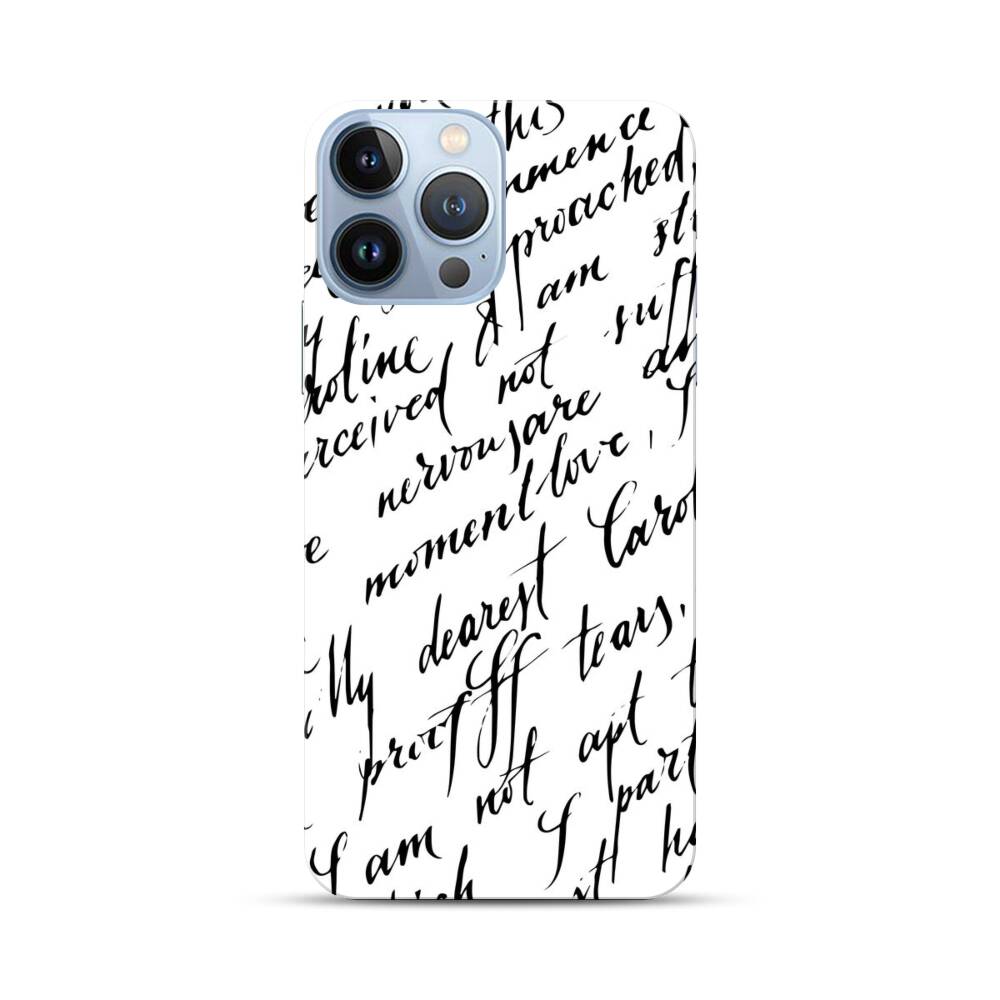 this
mmence
proached,
I am
roline
erceived not
nervous are
moment love,
My dearest Carol
proof tears,
not apt t
I am I part
it